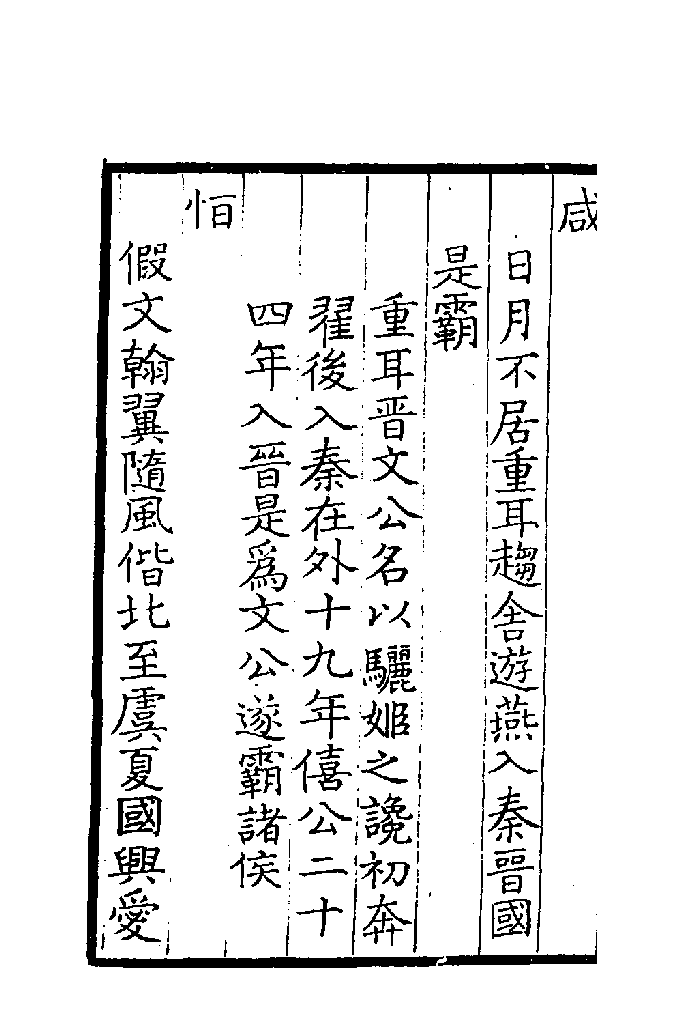 咸
日月不居重耳趨舍遊燕入秦晉國
是霸
重耳晋文公名以驪姬之讒初奔
翟後入秦在外十九年僖公二十
四年入晉是爲文公遂霸諸侯
恒
假文翰翼隨風偕北至虞夏國興愛